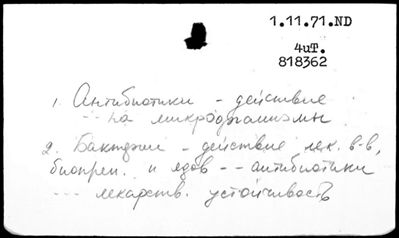 1.11.71.ND
4uт.
818362
1. Антибиотики - действие
-- на микроорганизмы
2. Бактерии - действие лек. в-в,
биопреп. и ядов -- антибиотики
--- лекарств. устойчивость